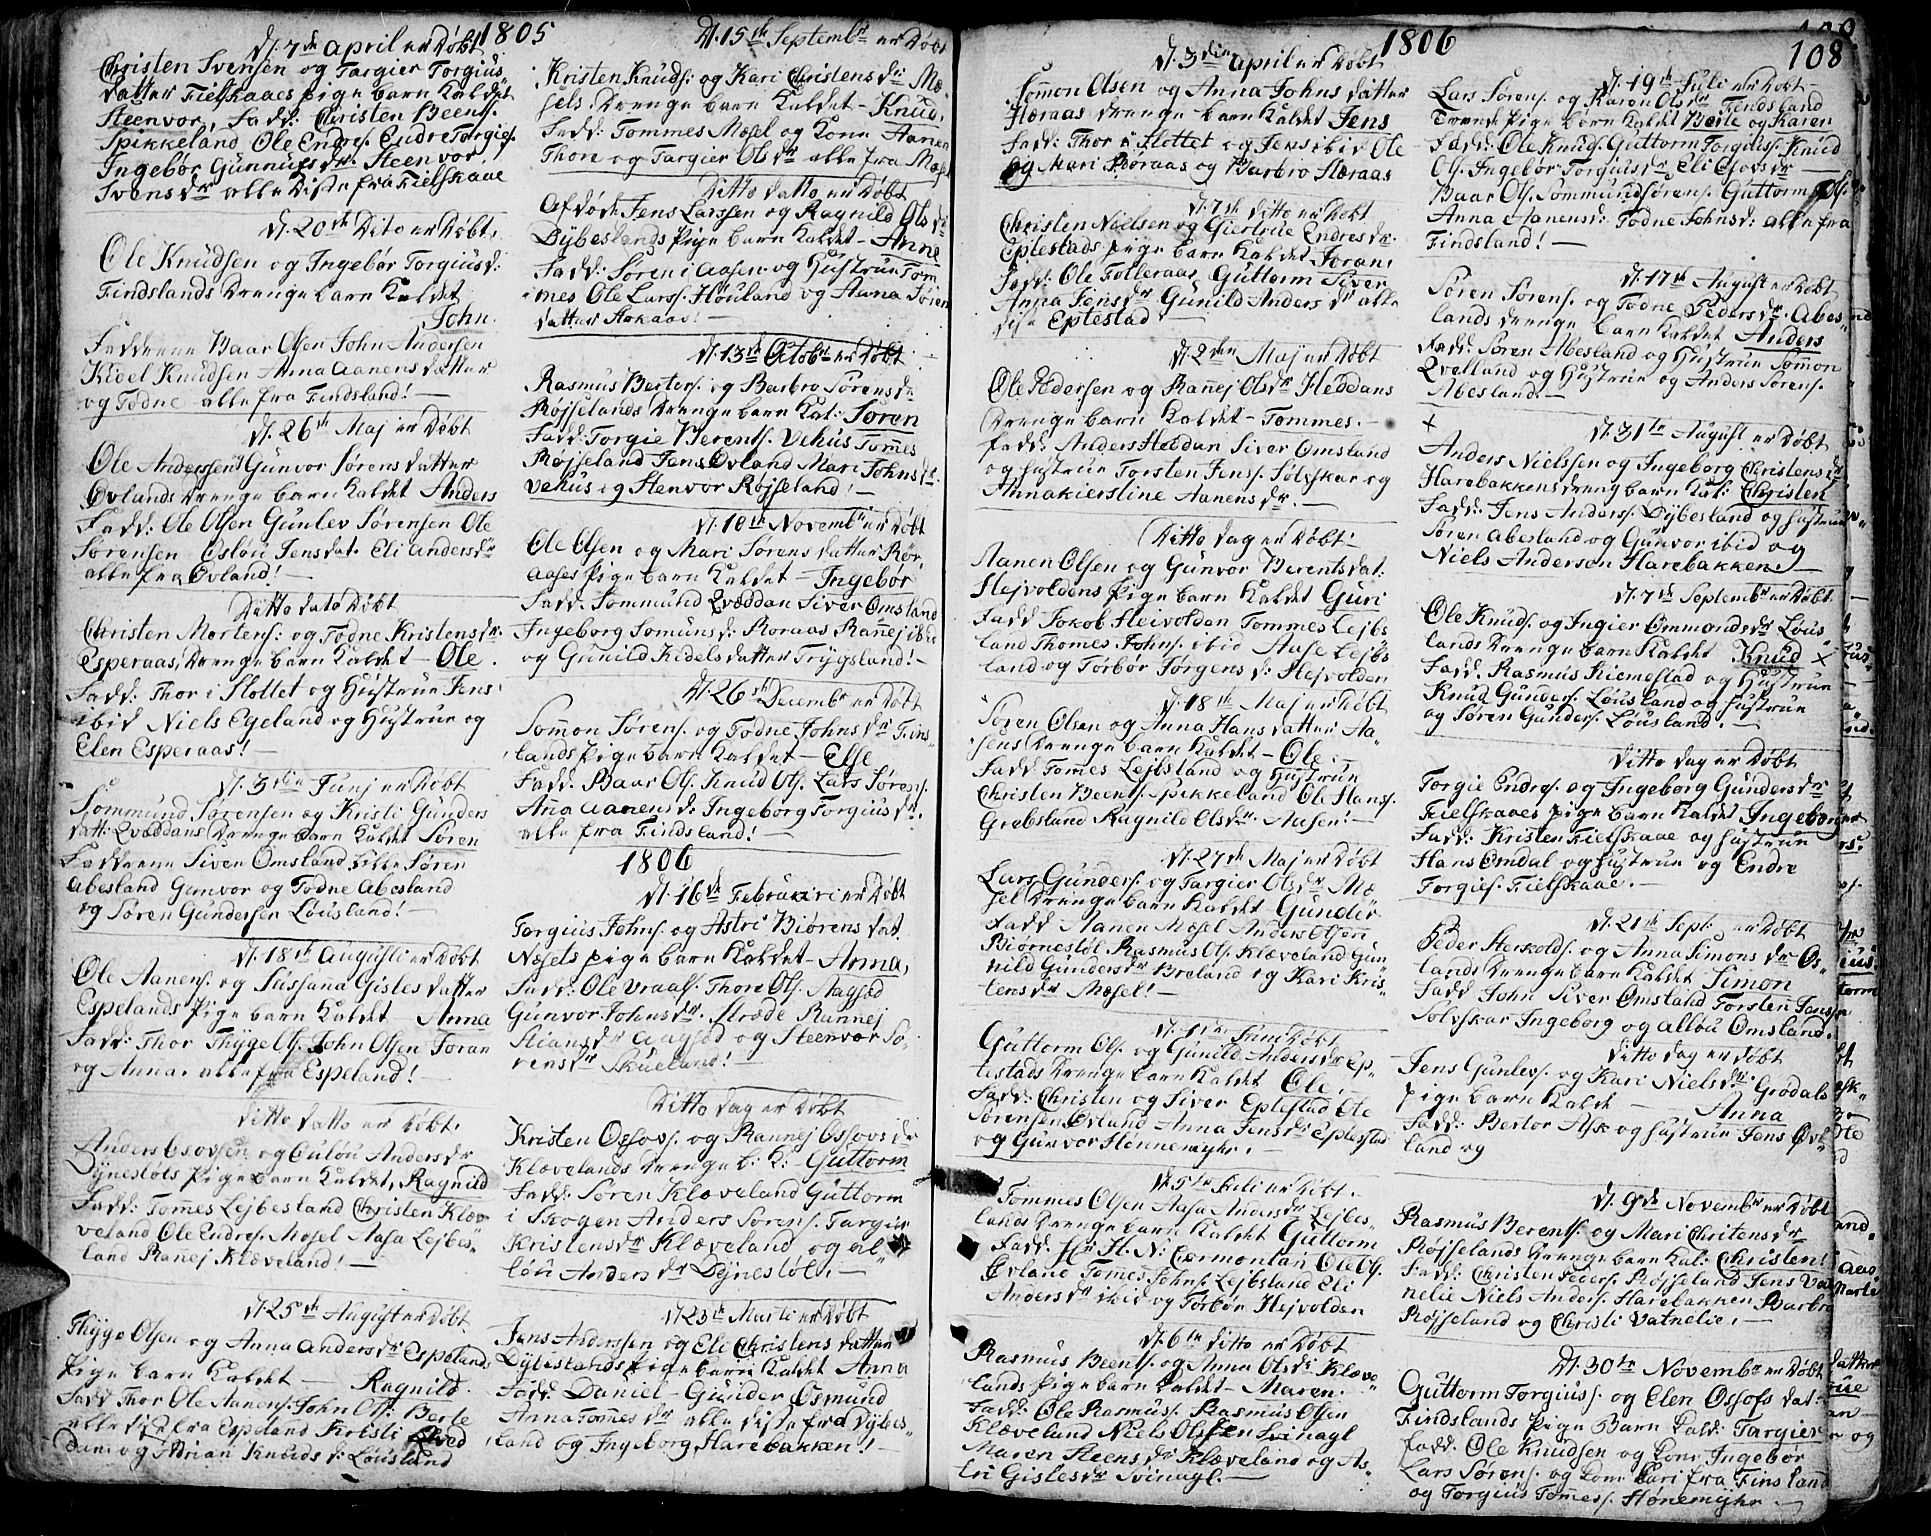 1805
d. 7de April er Døbt
Christen Svensen og Targier Torgius
datter Fielskaaes pige barn Kaldet
Steenvor, Fadd: Christen Beents.
Spikkeland Ole Endres. Endre Torgies.
Ingebør Gunnufs dr. Steenvor
Svens dr alle disse fra Fielskaae
d. 20de Dito er Døbt,
Ole Knudsen og Ingebør Torgius d:
Findslands drenge barn Kaldet
John.
Faddrene Baar Olsen John Andersen
Kidel Knudsen Anna Aanens datter
og Todne alle fra Findsland! —
d. 26de Maj er Døbt
Ole Anderssen Gunvor Sørens datter
Øvlands drenge barn kaldet Anders
Fadd: Ole Olsen Gunlev Sørensen Ole
Sørensen Oslou Jens dat. Eli Anders dr
alle fra Øvland! —
Ditto dato Døbt
Christen Mortens: og Todne Kristens dr.
Esperaas, drenge barn Kaldet — Ole.
Fadd: Thor i Slottet og Hustrue Jens
ibid Niels Egeland og Hustrue og
Elen Esperaas! —
d. 3die Junj er Døbt
Sommund Sørensen og Kristi Gunders
datt: Qvæddans drenge barn Kaldet Søren
Faddrene Siven Omsland Lille Søren
Abesland Gunvor og Todne Abesland
og Søren Gundersen Lousland! —
d. 18de Augusti er Døbt
Ole Aanens. og Sussana Gisles datter
Espelands pige barn Kaldet — Anna
Fadd: Thor Thygels. John Olsen Joran
og Anna. alle fra Espeland! —
ditto datto er Døbt.
Anders Osovsen og Oulou Anders dr
Dynestøls pige barn Kaldet, Ragnild
Fadd: Tommes Lejbesland Christen Klæv
veland Ole Endres. Mosel Aasa Lejbes
land Ranej Klæveland! —
d. 25de August er Døbt
Thyge Olsen og Anna Anders dr Espelands
pige barn Kaldet — Ragnild.
Fadd Thor Ole Aanens. John Ols. Berte
alle disse fra Espeland Kristi
og Adrian Knuds d: Lousland
d. 15de Septembr er Døbt
Kristen Knuds: og Kari Christens dr Mæ
sels drenge barn Kaldet — Knud,
Fadd: Tommes Mosel og Kone Aanen
Thore og Targier Ols dr alle fra Mæsel
Ditto datto er Døbt
Afdøde Jens Larssen og Ragnild Ols dr
Dybeslands pige barn Kaldet — Anne
Fadd: Søren i Aasen og Hustrue Tom
mes Ole Larss. Houland og Anna Søren
datter Aakaas! —
d. 13de Octobr er Døbt
Rasmus Berters. og Barbro Sørens dr
Røjselands drenge barn Kal: Søren
Fadd: Torgie Berents. Vehus Tommes
Røjseland Jens Øvland Mari Johns dr.
Vehus og Stenvor Røjseland! —
d. 18de Novembr er Døbt
Ole Olsen og Mari Sørens datter Rør
aases pige barn Kaldet — Ingebør
Fadd. Sommund Qvæddan Siver Omsland
Ingeborg Somuns d: Roraas Rannej ibid
og Gunild Kidels datter Trygsland! —
d. 26de Decembr er Døbt
Sommon Sørens. og Todne Johns dr Fins
lands pige barn Kaldet — Else
Fadd. Baar Ols. Knud Ols. Lars Sørens.
Anna Aanens d: Ingeborg Torgius dr.
alle fra Findsland! —
1806
d. 16de Februari er Døbt
Torgius Johns. og Astri Biørens dat.
Næsets pige barn Kaldet — Anna,
Fadd: Ole Vraals. Thore Ols. Aagsød
Gunvor Johns dr. Strøde Rannej
Stians dr Aagsød og Steenvor Sø
rens dr Skueland! —
Ditto dag er Døbt
Kristen Ossovs. og Rannej Ossovs dr
Klævelands drenge b: K: Guttorm
Fadd: Søren Klæveland Guttorm
i Skogen Anders Sørens. Targier
Kristens dr Klæveland, og ol
lou Anders dr Dynestøl. —
d. 23de Marti er Døbt
Jens Anderssen og Eli Christens datter
Dybeslands pige barn Kaldet Anna
Fadd: Daniel — Gunder Osmund
Anna Tommes dr alle disse fra Dybes
land og Ingeborg Harebakken! —
1806
108
d. 3die April er Døbt
Sommon Olsen og Anna Johns datter
Haraas drenge barn Kaldet Jens
Fadd: Thor i Slottet og Jens ibid Ole
og Mari Roraas og Barbro Haraas
d. 7de ditto er Døbt
Christen Nielsen og Giertrue Endres dr.
Eptestads pige barn Kaldet Joran,
Fadd: Ole Folleraas, Guttorm Siver
Anna Jens dr Gunild Anders dr alle
disse Eptestad —
d. 2den Maj er Døbt
Ole Pedersen og Rannej Ols dr Heddans
drenge barn Kaldet — Tommes. —
Fadd: Anders Heddan Siver Omsland
og Hustrue Torsten Jens. Sølvskar og
Annakierstine Aanens dr. —
Ditto dag er Døbt!
Aanen Olsen og Gunvor Berents dat:
Hejvoldens pige barn Kaldet Guri
Fadd Jokob Heivolden Tommes Lejbs
land Thomes Johns. ibid Aase Lejbs
land og Torbør Jørgens d: Hejvolden
d. 18de Maj er Døbt
Søren Olsen og Anna Hans datter Aa
sens drenge barn Kaldet — Ole.
Fadd Tommes Lejbsland og Hustrue
Christen Beents. Spikkeland Ole Hans.
Grebsland Ragnild Ols dr. Aasen! —
d. 27de Maj er Døbt
Lars Gunders. og Targier Ols dr Mæ
sel drenge barn Kaldet Gunder
Fadd Aanen Mosel Anders Olsen
Biørnestøl Rasmus Ols. Klæveland Gun
nild Gunders dr Breland og Kari Kris
tens dr Mæsel! —
d. 1ste Juni Døbt
Guttorm Ols. og Gunild Anders dr Ep
testads drenge barn Kaldet Ole,
Fadd: Christen og Siver Eptestad Ole
Sørensen Øvland Anna Jens dr Eptestad
og Gunvor Hønnemyhr. —
d. 5te Juli er Døbt.
Tommes Olsen Aasa Anders dr Lejbes
lands drenge barn Kaldet Guttorm
Fadd. Hr H. N: Cærmontan Ole Ols.
Øvland Tommes Johns. Lejbsland Eli
Anders dr ibid og Torbør Hejvolden
d. 6te ditto er Døbt
Rasmus Beents. og Anna Ols dr Klæve
lands pige barn Kaldet — Maren.
Fadd: Ole Rasmus. Rasmus Olsen
Klæveland Niels Olssen Svinagl
Maren Steens dr Klæveland og As
tri Gisles dr Svinagl. —
d. 19de Juli er Døbt
Lars Sørens. og Karen Ols dr Findsland
Tvende pige barn Kaldet Berte og Karen
Fadd: Ole Knuds. Guttorm Torgius. Knud
Ols. Ingebør Torgius dr Eli
Baar Ols. Sommund Sørens. Guttorm Ols.
Anna Aanens d: Todne Johns d: alle fra
Findsland! —
d. 17de August er Døbt
Søren Sørens. og Todne Peders dr. Abes
lands drenge barn Kaldet Anders
Fadd: Søren Abesland og Hustrue Sommon
Qvelland og Hustrue og Anders Sørens.
Abesland. —
d. 31te August er Døbt
Anders Nielssen og Ingeborg Christens dr
Harebakkens dreng barn Kal: Christen
Fadd: Jens Anders. Dybesland og Hustrue
Søren Abesland og Gunvor ibid og
Niels Anderson Harebakken. —
d. 7de Septembr er Døbt
Ole Knuds. og Ingier Ommonds dr Lous
lands drenge barn Kaldet Knud ×
Fadd. Rasmus Kiemestad og Hustrue
Knud Gunders. Lousland og Hustrue
og Søren Gunders. Lousland. —
Ditto dag er Døbt
Torgie Endres. og Ingeborg Gunders dr
Fielskaaes pige barn Kaldet Ingeborg
Fadd: Kristen Fielskaae og Hustrue
Hans Omdal og Hustrue og Endre
Torgies. Fielskaae. —
d. 21de Sept: er Døbt
Peder Herkolds. og Anna Simons dr Os
lands drenge barn Kaldet Simon
Fadd John Siver Omsland Torsten Jensen
Solvskar Ingeborg og Allou Omsland.
Ditto dag er Døbt
Jens Gunlevs. og Kari Niels dr Grødals
pige barn Kaldt — Anna
Fadd: Bertor Ask og Hustrue Jens Øvle
land og
d. 9de Novembr er Døbt
Rasmus Berents. og Mari Christens dr
Røjselands drenge barn Kal: Christen
Fadd: Christen Peders. Røjseland Jens Vat
nelie Niels Anders. Harebakken Barbro
Røjseland og Christi Vatnelie. —
d. 30te Novembr er Døbt
Guttorm Torgius. og Elen Ossofs dat:
Findslands pige Barn Kald: Targier
Fadd: Ole Knudsen og Kone Ingebør
Lars Sørens. og Kone Kari fra Finsland
og Torgius Tommes. Hønemyhr —